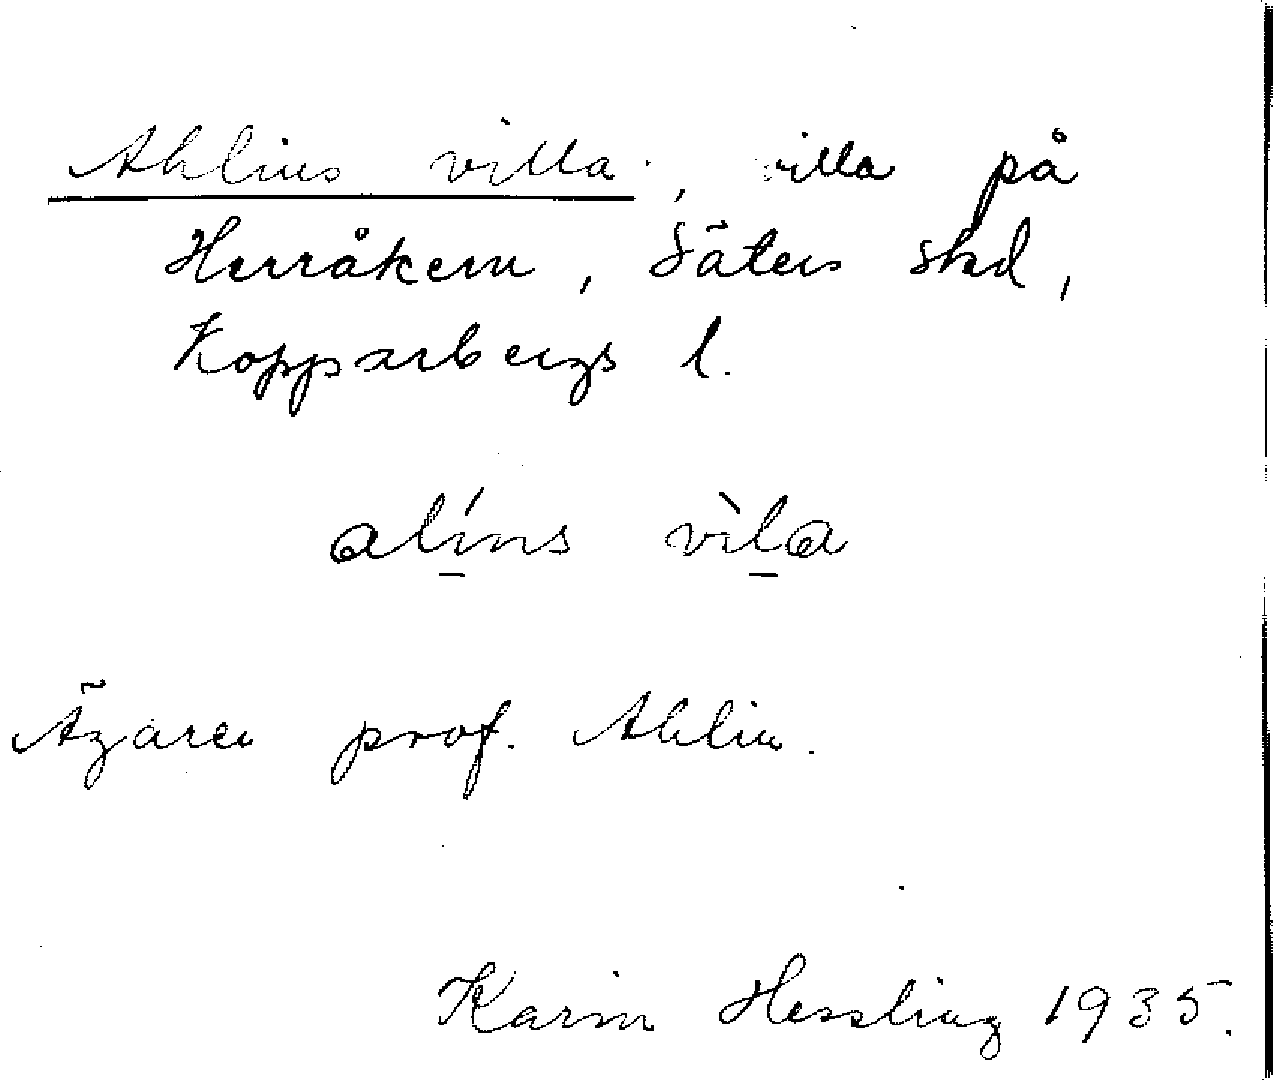 Ahlins villa, villa på
Herråkern, Säters stad,
Kopparbergs l.
alíns vìla
Ägaren prof. Ahlin.
Karin Hessling 1935.